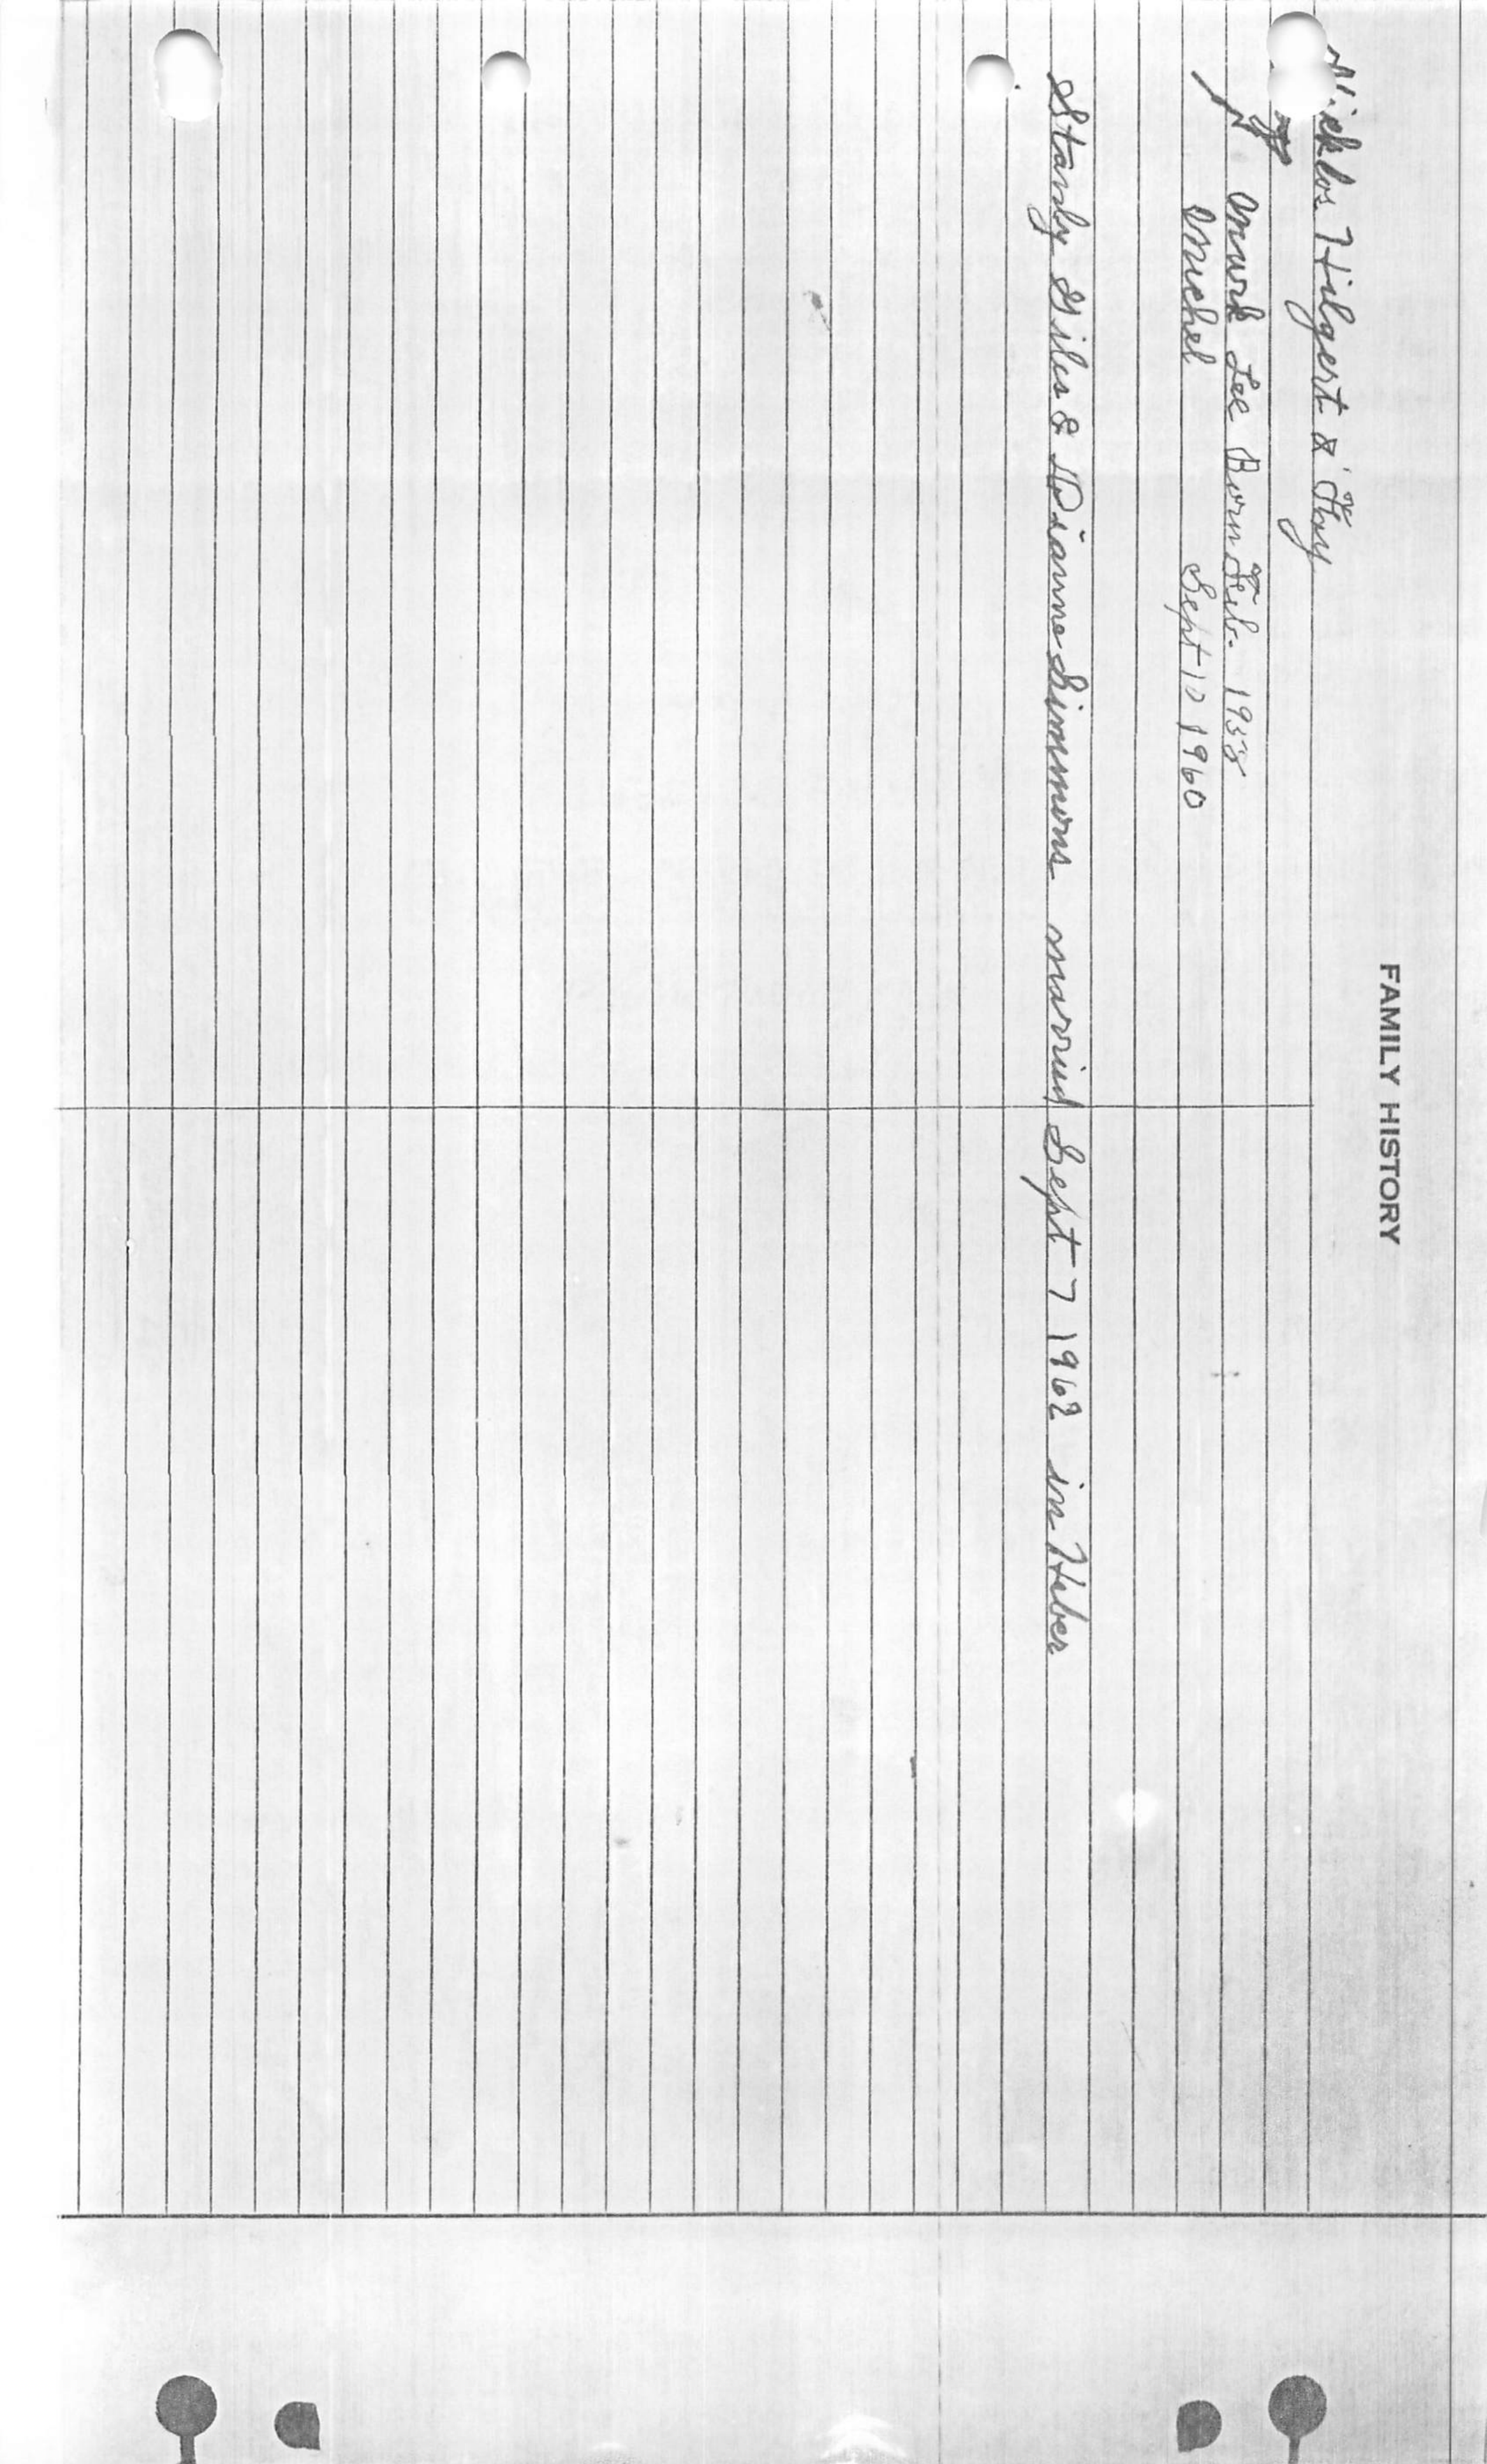 FAMILY HISTORY
Nicklos Hilgert & Fay
Mark Lee Born Feb. 1958
Michel Sept 12 1960
Stanly Giles & Dianne Simmons married Sept 7 1962 in Heber